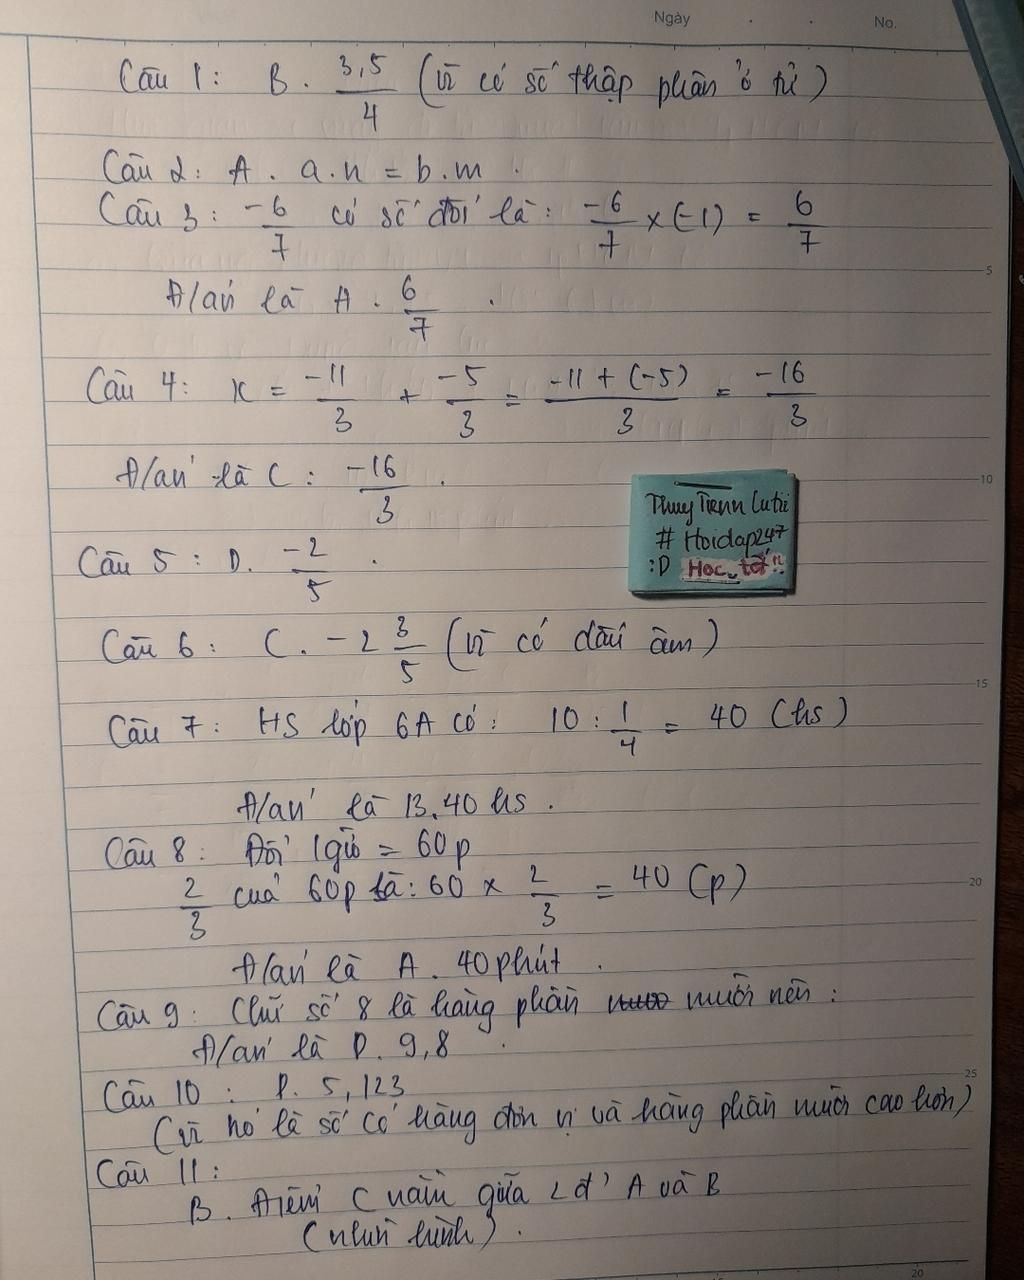 Ngày . . No.
Câu 1: B. 3,5/4 (vì có số thập phân ở tử)
Câu 2: A. a.n = b.m.
Câu 3: -6/7 có số đối là: -6/7 x (-1) = 6/7
Đ/án là A. 6/7.
Câu 4: x = -11/3 + -5/3 = -11 + (-5)/3 = -16/3
Đ/án là C: -16/3.
Thuy Tienn Cutii
# Hoidap247
:D Học tốt!!
Câu 5: D. -2/5.
Câu 6: C. -2 3/5 (vì có dấu âm)
Câu 7: HS lớp 6A có: 10 : 1/4 = 40 (hs)
Đ/án là B. 40 hs.
Câu 8: Đổi 1giờ = 60p
2/3 của 60p là: 60 x 2/3 = 40 (p)
Đ/án là A. 40 phút.
Câu 9: Chữ số 8 là hàng phần mười nên:
Đ/án là D. 9,8.
Câu 10: D. 5,123
(vì nó là số có hàng đơn vị và hàng phần mười cao hơn)
Câu 11:
B. Điểm C nằm giữa 2 đ' A và B
(như hình).
5
10
15
20
25
20